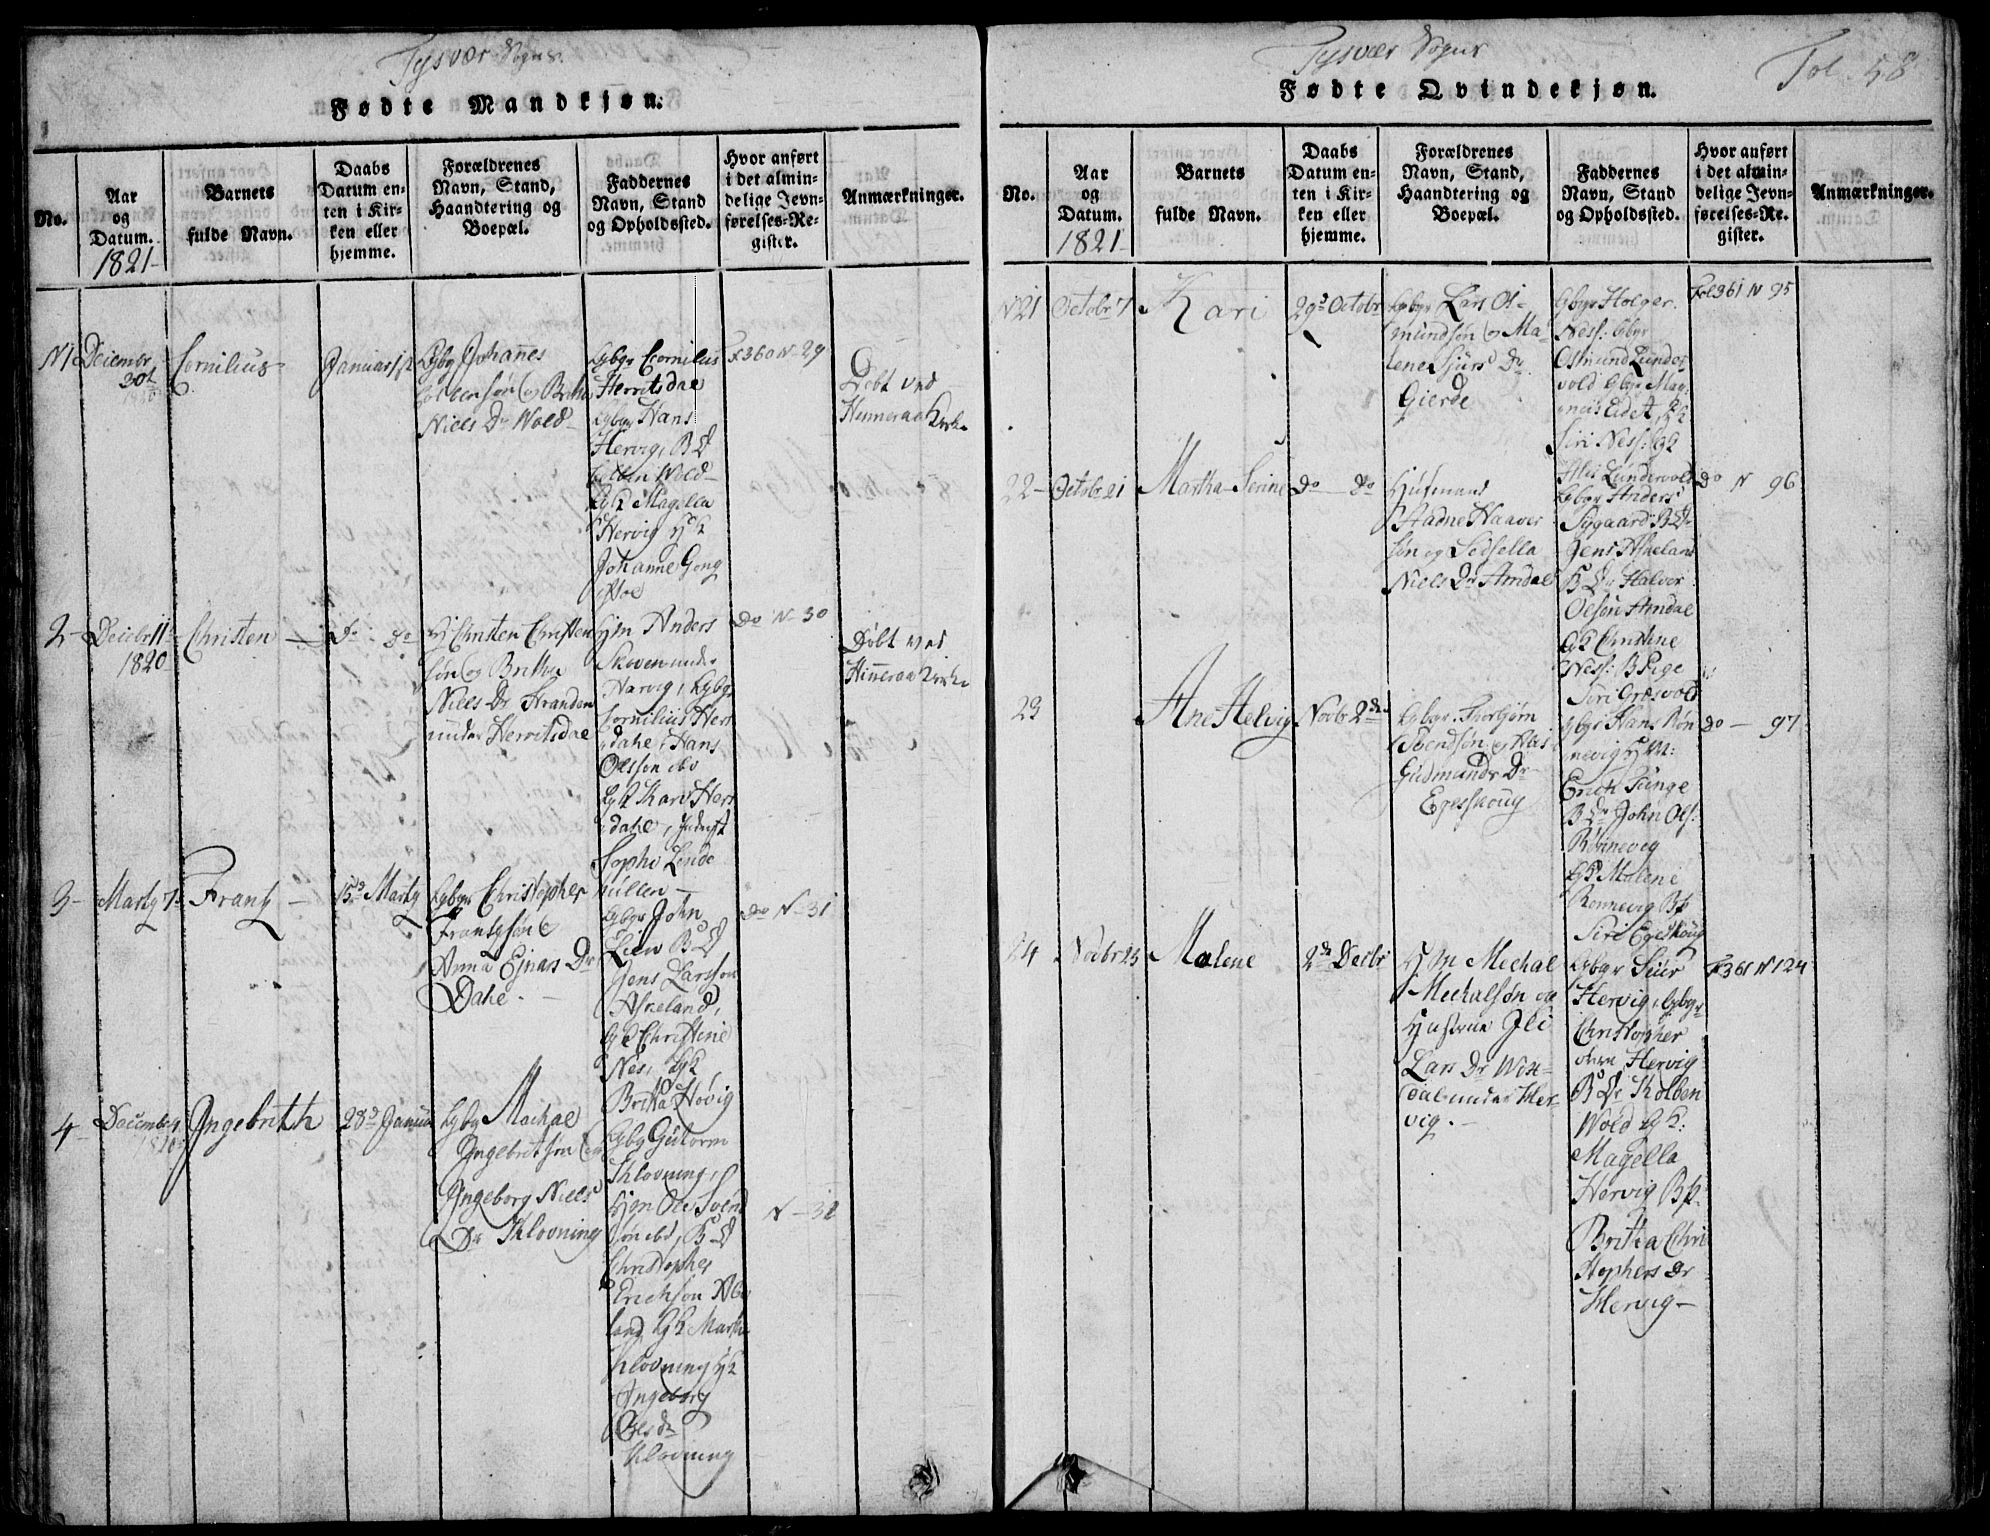 Tysvær Sogns
Fødte Mandkjøn.
No.
Aar
og
Datum.
1821
Barnets
fulde Navn.
Daabs
Datum en-
ten i Kir-
ken eller
hjemme.
Forældrenes
Navn, Stand,
Haandtering og
Boepæl.
Faddernes
Navn, Stand
og Opholdssted.
Hvor anført
i det almin-
delige Jevn-
førelses-Re-
gister.
Anmærkninger.
N 1
Decembr
30t
1820
Cornilius
Januar
Gbgr Johannes
og Britha
Niels Dr Wold
Gbgr Cornilius
Herritsdae
Gbgr Hans
Hervig, B D
Colben Wold
Magella
Hervig
Johanne Gong
støe
F 360 N 29
Døbt ved
Kirke
2
Decbr 11
1820
Christen
Do Do
Christen Christen
søn og Britha
Niels Dr Stranden
under Herritsdae
Hm Anders
under
Harvig, Gbgr
Cornilius Herr
dahe, Hans
Olsson ibd
Kari Herr
dahe,
Sophe Linde
Müller
do N 30
Døbt ved
Kirke
3
Marty 7
Frantz
15d Marty
Gbgr Christopher
Frantzsøn
Anna Ejnars Dr
Dahe
Gbgr John
Lien B D
Jens Larsson
Askeland,
Christine
Nes,
Britha Høvig
do N 31
4
December
1820
Ingebrith
28d Januar
Gbgr Michae
Ingebritsøn og
Ingeborg Niels
Dr Klovning
Gbgr Gutorm
Klovning,
Hm Ole Svend
søn ibd, B D
Christopher
Erichson
land Martha
Klovning
Ingeborg
Ols dr
Klovning
N 32
Tysvær Sogns
Fol 58
Fødte Qvindekjøn.
No.
Aar
og
Datum.
1821
Barnets
fulde Navn.
Daabs
Datum en-
ten i Kir-
ken eller
hjemme.
Forældrenes
Navn, Stand,
Haandtering og
Boepæl.
Faddernes
Navn, Stand
og Opholdssted.
Hvor anført
i det almin-
delige Jevn-
førelses-Re-
gister.
Anmærkninger.
N 21
Octobr 7
Kari
29d Octobr
Gbgr Lars Os-
mundsøn og Ma-
lene Sjurs Dr
Gierde
Gbgr Holger
Ness: Gbgr
Osmund Lunde
vold Gbgr Mag
nus Eidet,
Siri Ness:
Lundevold
Fol 361 N 95
22
Octobr 21
Martha Serine
do do
Husmand
Stadne Haaver
søn og Sedsella
Niels Dr Amdae
Gbgr Anders
Sygaard B D
Jens Askeland
B D Halvor
Olsøn Amdae
Christine
Ness: B Pige
Siri Græsvold
do N 96
23
Ane Helvig
Novbr 2d
Gbgr Thorbjørn
Svendsøn og
Gudmunds Dr
Egeskoug
Gbgr Hans Røn
nevig H M:
Erich Tunge
B D John Ols:
Rønnevig
Malene
Rønnevig Bp
Siri Egeskoug
do 97
24
Novbr 25
Malene
2d Decbr
H M Michae
Michalsøn og
Hustrue Ili
Lars Dr
dal under Her-
vig.
Gbgr Siur
Hervig, Gbgr
Christopher
Hervig
B D Kolben
Wold
Magella
Hervig Bp:
Britha Chri
stophers Dr
Hervig
F 361 N 124